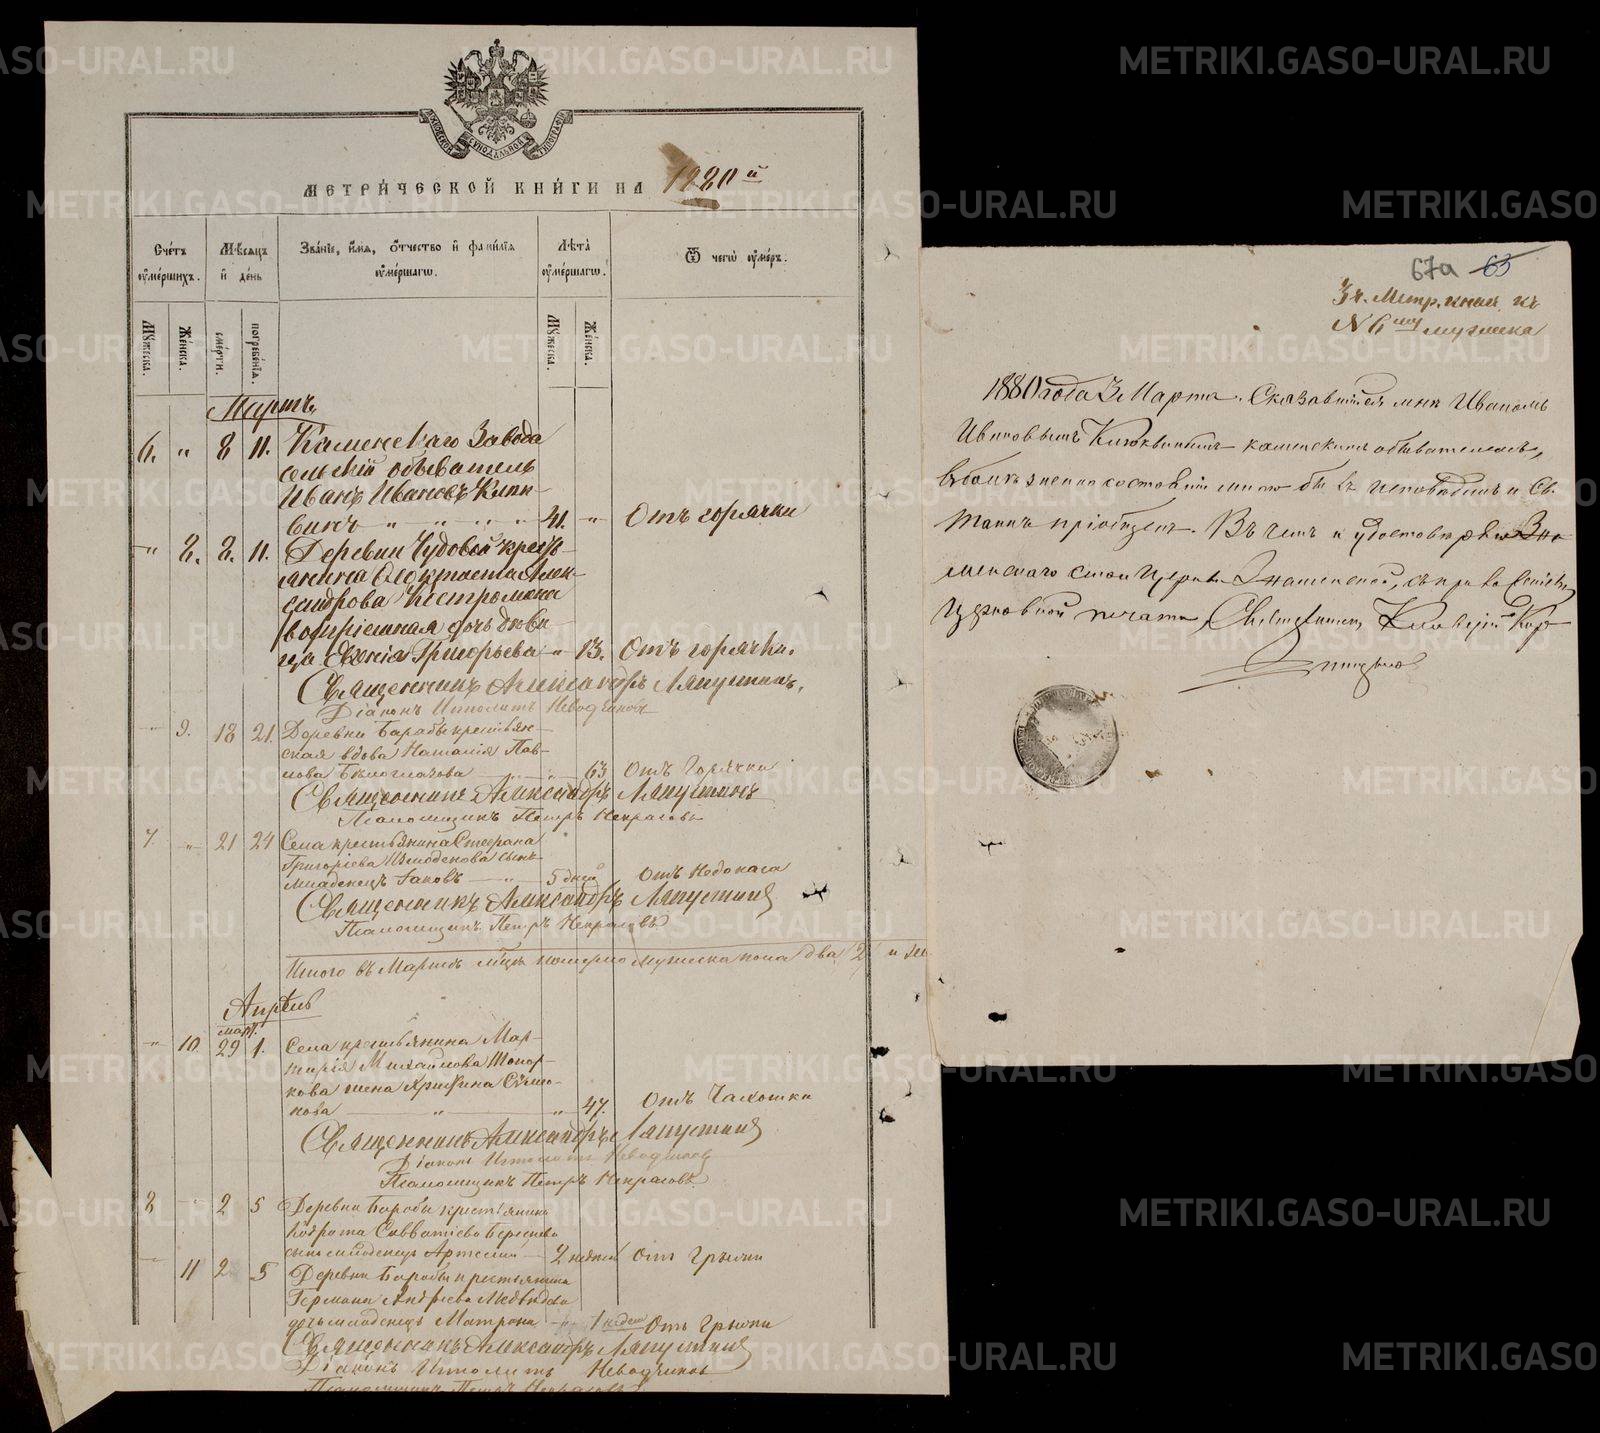 МОСКОВСКОЙ СѴНОДАЛЬНОЙ ТИПОГРАФІИ
МЕТРИ́ЧЕСКОЙ КНИ́ГИ НА 1880й
Счетъ ᲂу҆ме́ршихъ.
Мѣсяцъ и҆ де́нь
Зва́нїе, и҆́мѧ, ѻ҆́тчество и҆ фами́лїѧ ᲂу҆ме́ршагѡ.
Лѣ́та ᲂу҆ме́ршагѡ.
Ѿ чегѡ̀ ᲂу҆́меръ.
Мꙋ́жеска.
Же́нска.
сме́рти.
погребе́нїѧ.
Мꙋ́жеска.
Же́нска.
Мартъ
6. „ 8 11. Каменскаго Завода
сельскій обыватель
Иванъ Ивановъ Клюк-
винъ „ „ „ „ 41. „ Отъ горячки
„ 8. 8. 11. Деревни Чудовой кресть-
янина Ѳеоктиста Алек-
сандрова Костромина
дочь дѣви-
ца Григорьева „ 13. Отъ горячки.
Священникъ Александръ Ляпустинъ.
Діаконъ Ипполитъ Неводчиковъ
„ 9. 18 21. Деревни Барабы крестьян-
ская вдова Наталія Пав-
лова Бѣлоглазова „ „ 63 Отъ Горячки
Священникъ Александръ Ляпустинъ
Псаломщикъ Петръ Некрасовъ
7. „ 21 24 Села крестьянина Стефана
Григоріева сынъ
младенецъ Іаковъ „ 5 дней Отъ Недокаса
Священникъ Александръ Ляпустинъ
Псаломщикъ Петръ Некрасовъ
Итого въ Мартѣ м҃цѣ померло мужеска пола два 2 и
Апрѣль
март.
„ 10. 29 1. Села крестьянина Мар-
Михайлова Топор-
кова жена Симо-
нова „ „ 47. Отъ Чахотки
Священникъ Александръ Ляпустинъ
Діаконъ Ипполитъ Неводчиковъ
Псаломщикъ Петръ Некрасовъ
8 „ 2 5 Деревни Барабы крестьянина
Кодрата Савватіева
сынъ младенецъ Артемій 2 недѣли Отъ Грыжи
„ 11 2 5 Деревни Барабы крестьянина
Германа Андреева Медвѣдева
дочь младенецъ Матрона 1 недели Отъ Грыжи
Священникъ Александръ Ляпустинъ
Діаконъ Ипполитъ Неводчиковъ
Псаломщикъ Петръ Некрасовъ
67а 63
3 ч. Метр. книги къ
N 6му мужеска
1880 года 3 Марта. Сказавшійся мнѣ Иваномъ
Ивановымъ Клюквинымъ каменскимъ обывателемъ,
въ болѣзненно состояніи мною бы въ исповѣданъ и Св.
Таинъ пріобщенъ. Въ чемъ и удостовѣряю Зна-
менскаго села Церкви Знаменской, съ
церковной печати, Священникъ Кар-
METRIKI.GASO-URAL.RU